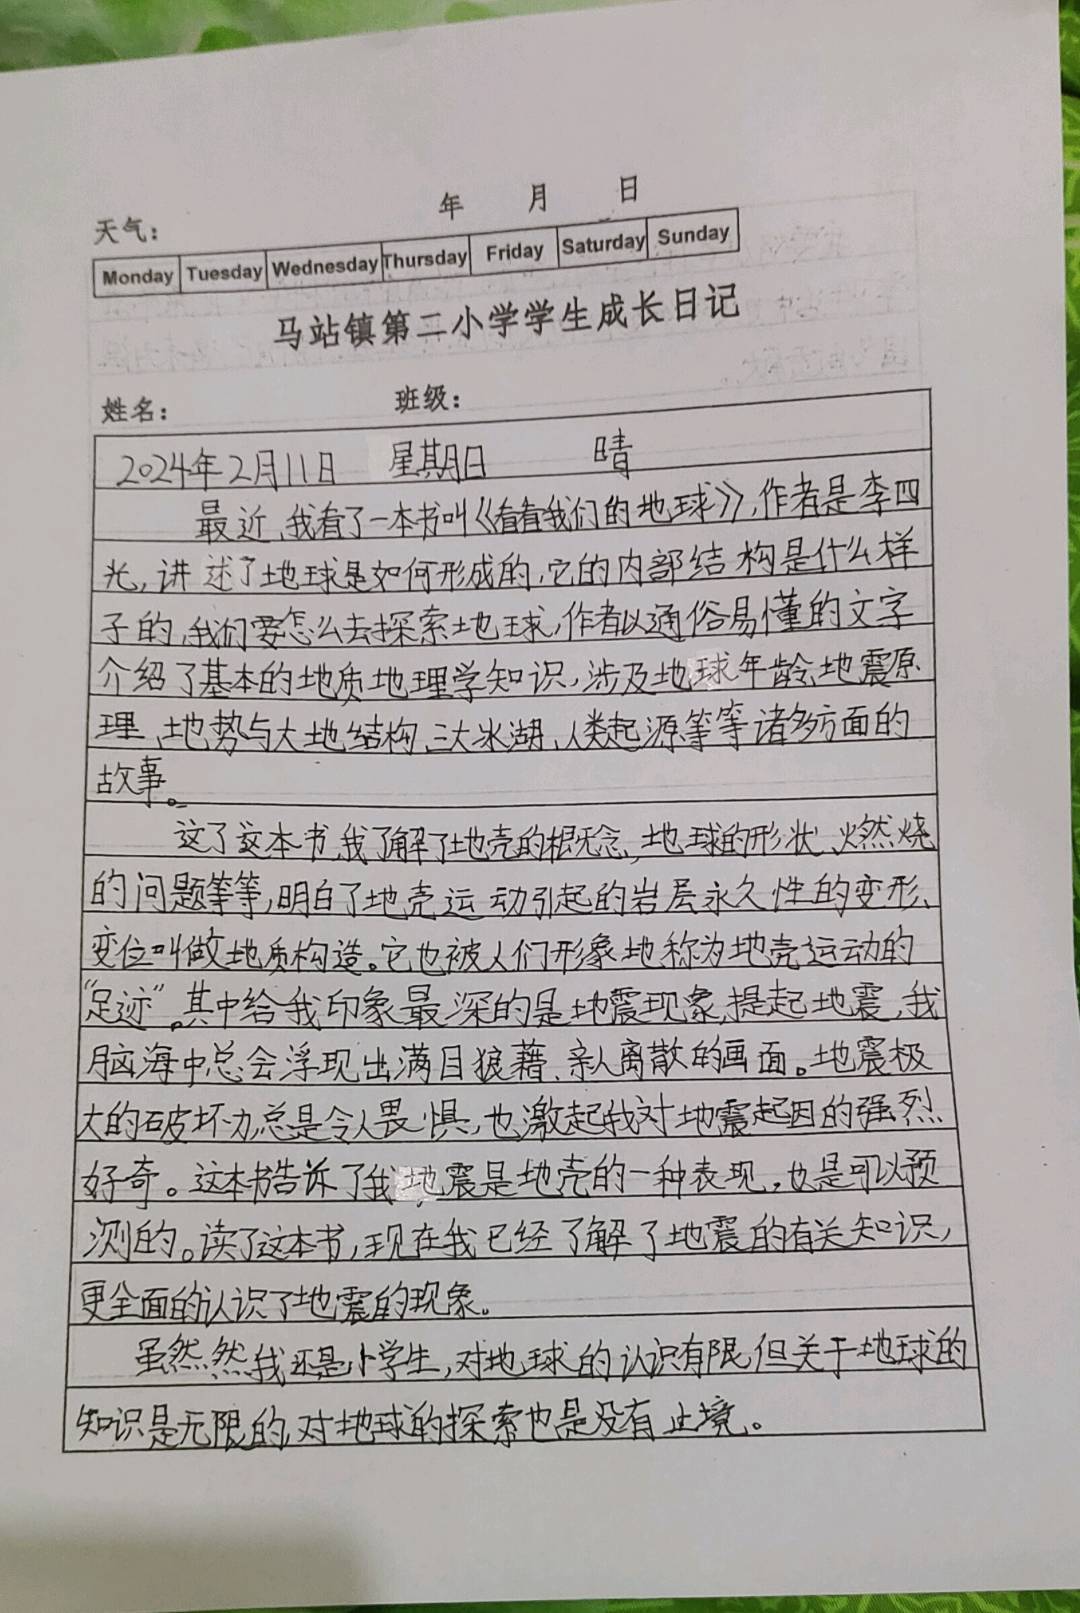 年 月 日
天气：
Monday Tuesday Wednesday Thursday Friday Saturday Sunday
马站镇第二小学学生成长日记
姓名： 班级：
2024年2月11日 星期日 晴
最近，我看了一本书叫《看看我们的地球》，作者是李四
光，讲述了地球是如何形成的，它的内部结构是什么样
子的，我们要怎么去探索地球，作者以通俗易懂的文字
介绍了基本的地质地理学知识，涉及地球年龄、地震原
理、地势与大地结构、三大冰湖、人类起源等等诸多方面的
故事。
这了这本书，我了解了地壳的概念、地球的形状、燃烧
的问题等等，明白了地壳运动引起的岩层永久性的变形、
变位叫做地质构造。它也被人们形象地称为地壳运动的
“足迹”。其中给我印象最深的是地震现象，提起地震，我
脑海中总会浮现出满目狼藉、亲人离散的画面。地震极
大的破坏力，总是令人畏惧，也激起我对地震起因的强烈
好奇。这本书告诉了我地震是地壳的一种表现，也是可以预
测的。读了这本书，现在我已经了解了地震的有关知识，
更全面的认识了地震的现象。
虽然然我还是小学生，对地球的认识有限，但关于地球的
知识是无限的，对地球的探索也是没有止境。